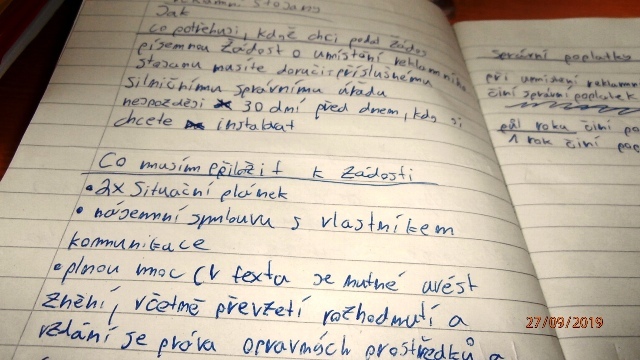 Stojany
Jak
co potřebuji, kdně chci podat žádos
písemnou žádost o umístění reklamního
stojanu musíte doručit příslušnému
silničnímu správnímu úřadu
nejpozději 30 dní před dnem, kdy si
chcete instalovat
Co musím přiložit k žádosti
• 2x situační plánek
• nájemní smlouvu s vlastníkem
komunikace
• plnou moc (v textu je nutné uvést
znění, včetně převzetí rozhodnutí a
vzdání se práva opravných prostředků a
správní poplatky
při umístění reklamn
činí správní poplatek
půl roku činí po
1 rok činí pop
27/09/2019